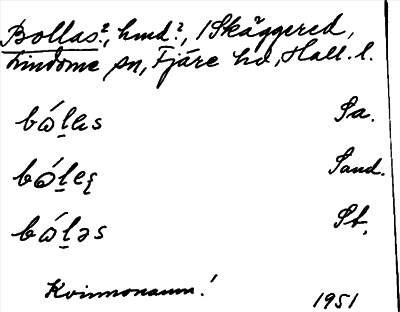 Bollas?, hmd?, /Skäggered,
Lindome sn, Fjäre hd, Hall. l.
bɷ́l̠ɐs Sa.
bɷ́l̠eς Sand.
bɷ́l̠əs St.
Kvinnonamn!
1951